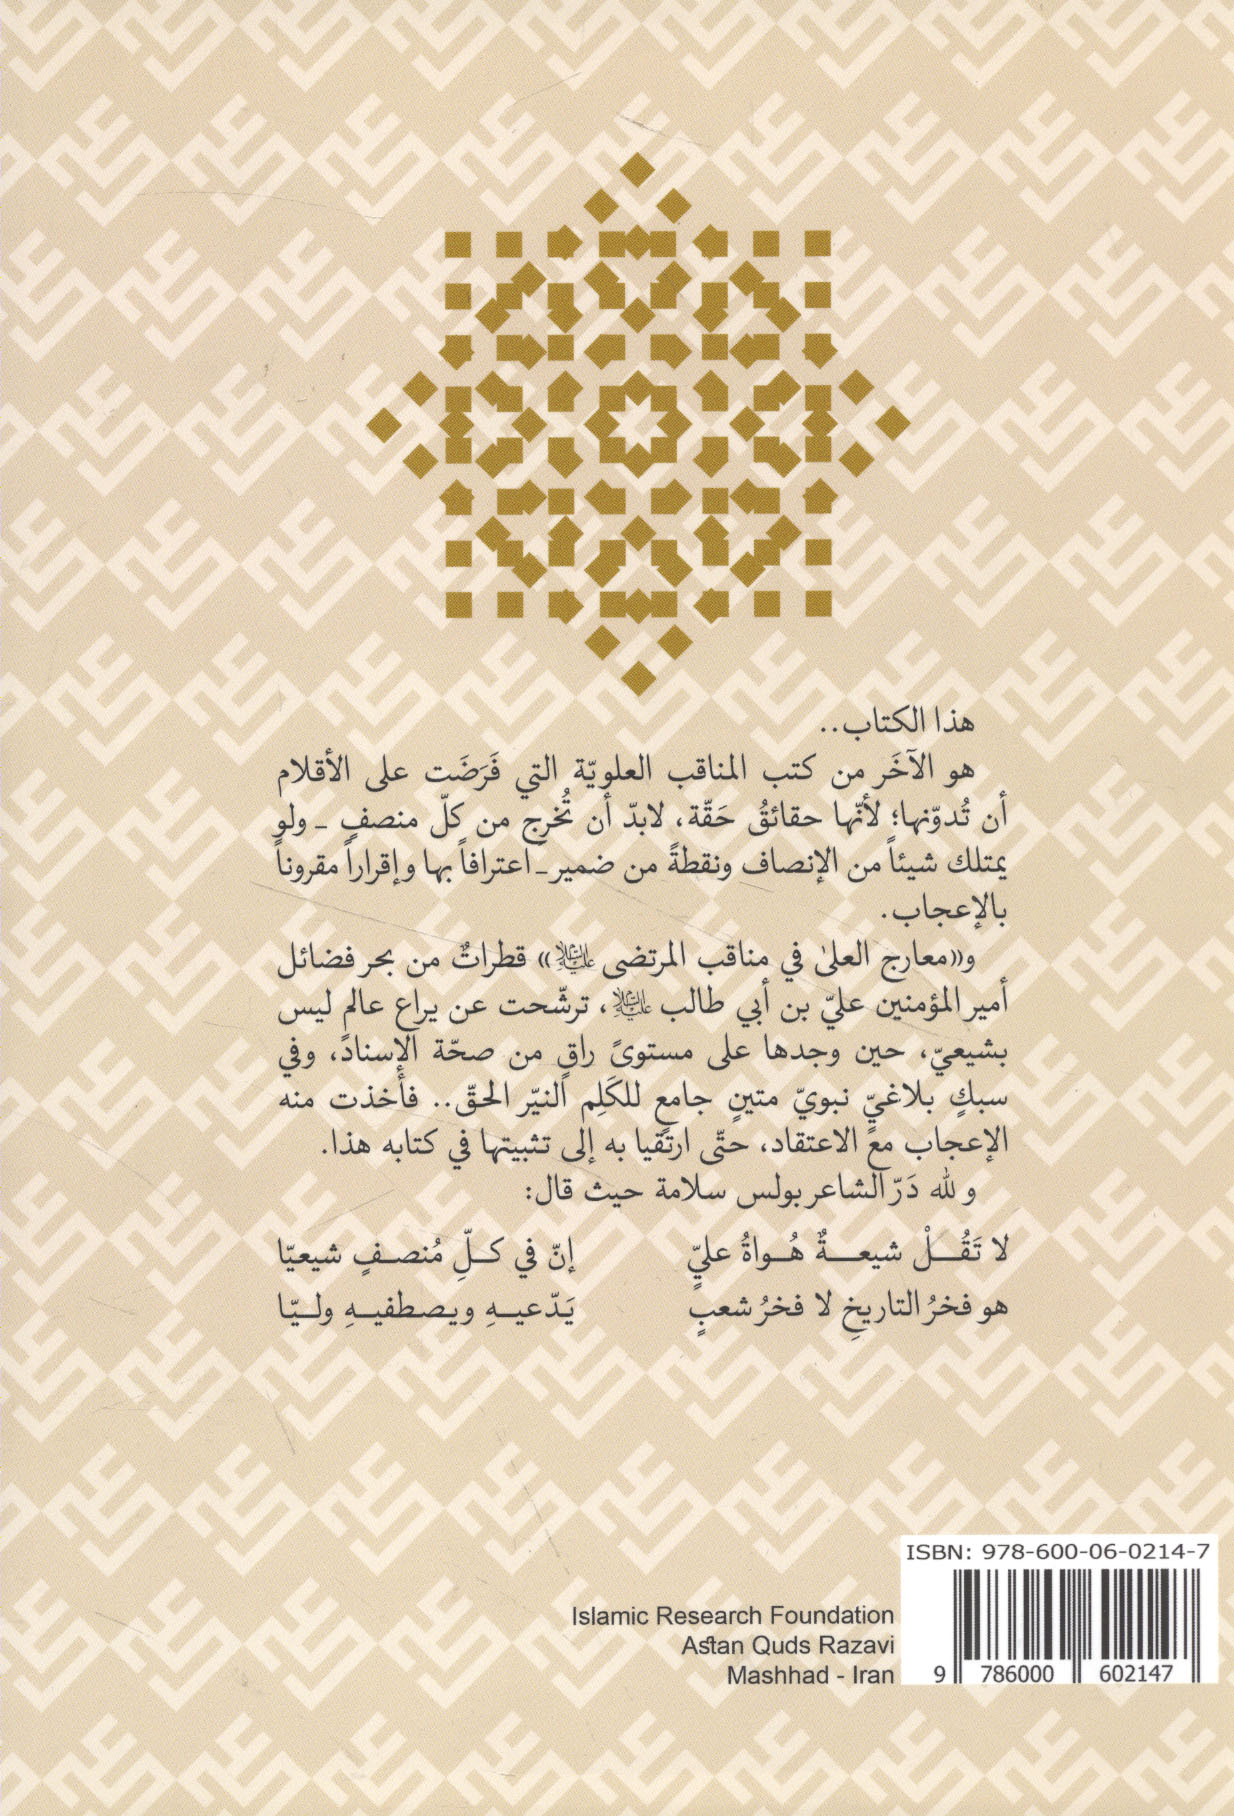 هذا الكتاب..
هو الآخَر من كتب المناقب العلويّة التي فَرَضَت على الأقلام
أن تُدوّنها؛ لأنّها حقائقُ حَقّة، لابدّ أن تُخرج من كلّ منصفٍ ـ ولو
يمتلك شيئاً من الإنصاف ونقطةً من ضمير ـ اعترافاً بها وإقراراً مقروناً
بالإعجاب.
و«معارج العلىٰ في مناقب المرتضى عليه السلام» قطراتٌ من بحر فضائل
أمير المؤمنين عليّ بن أبي طالب عليه السلام، ترشّحت عن يراع عالمٍ ليس
بشيعيّ، حين وجدها على مستوىً راقٍ من صحّة الإسناد، وفي
سبكٍ بلاغيٍّ نبويّ متينٍ جامعٍ للكَلِم النيّر الحقّ.. فأخذت منه
الإعجاب مع الاعتقاد، حتّى ارتقيا به إلى تثبيتها في كتابه هذا.
و لله دَرّ الشاعر بولس سلامة حيث قال:
لا تَقُلْ شيعةٌ هُواةُ عليٍّ إنّ في كلِّ مُنصفٍ شيعيّا
هو فخرُ التاريخِ لا فخرُ شعبٍ يَدّعيهِ ويصطفيهِ وليّا
ISBN: 978-600-06-0214-7
Islamic Research Foundation
Astan Quds Razavi
Mashhad - Iran
9 786000 602147